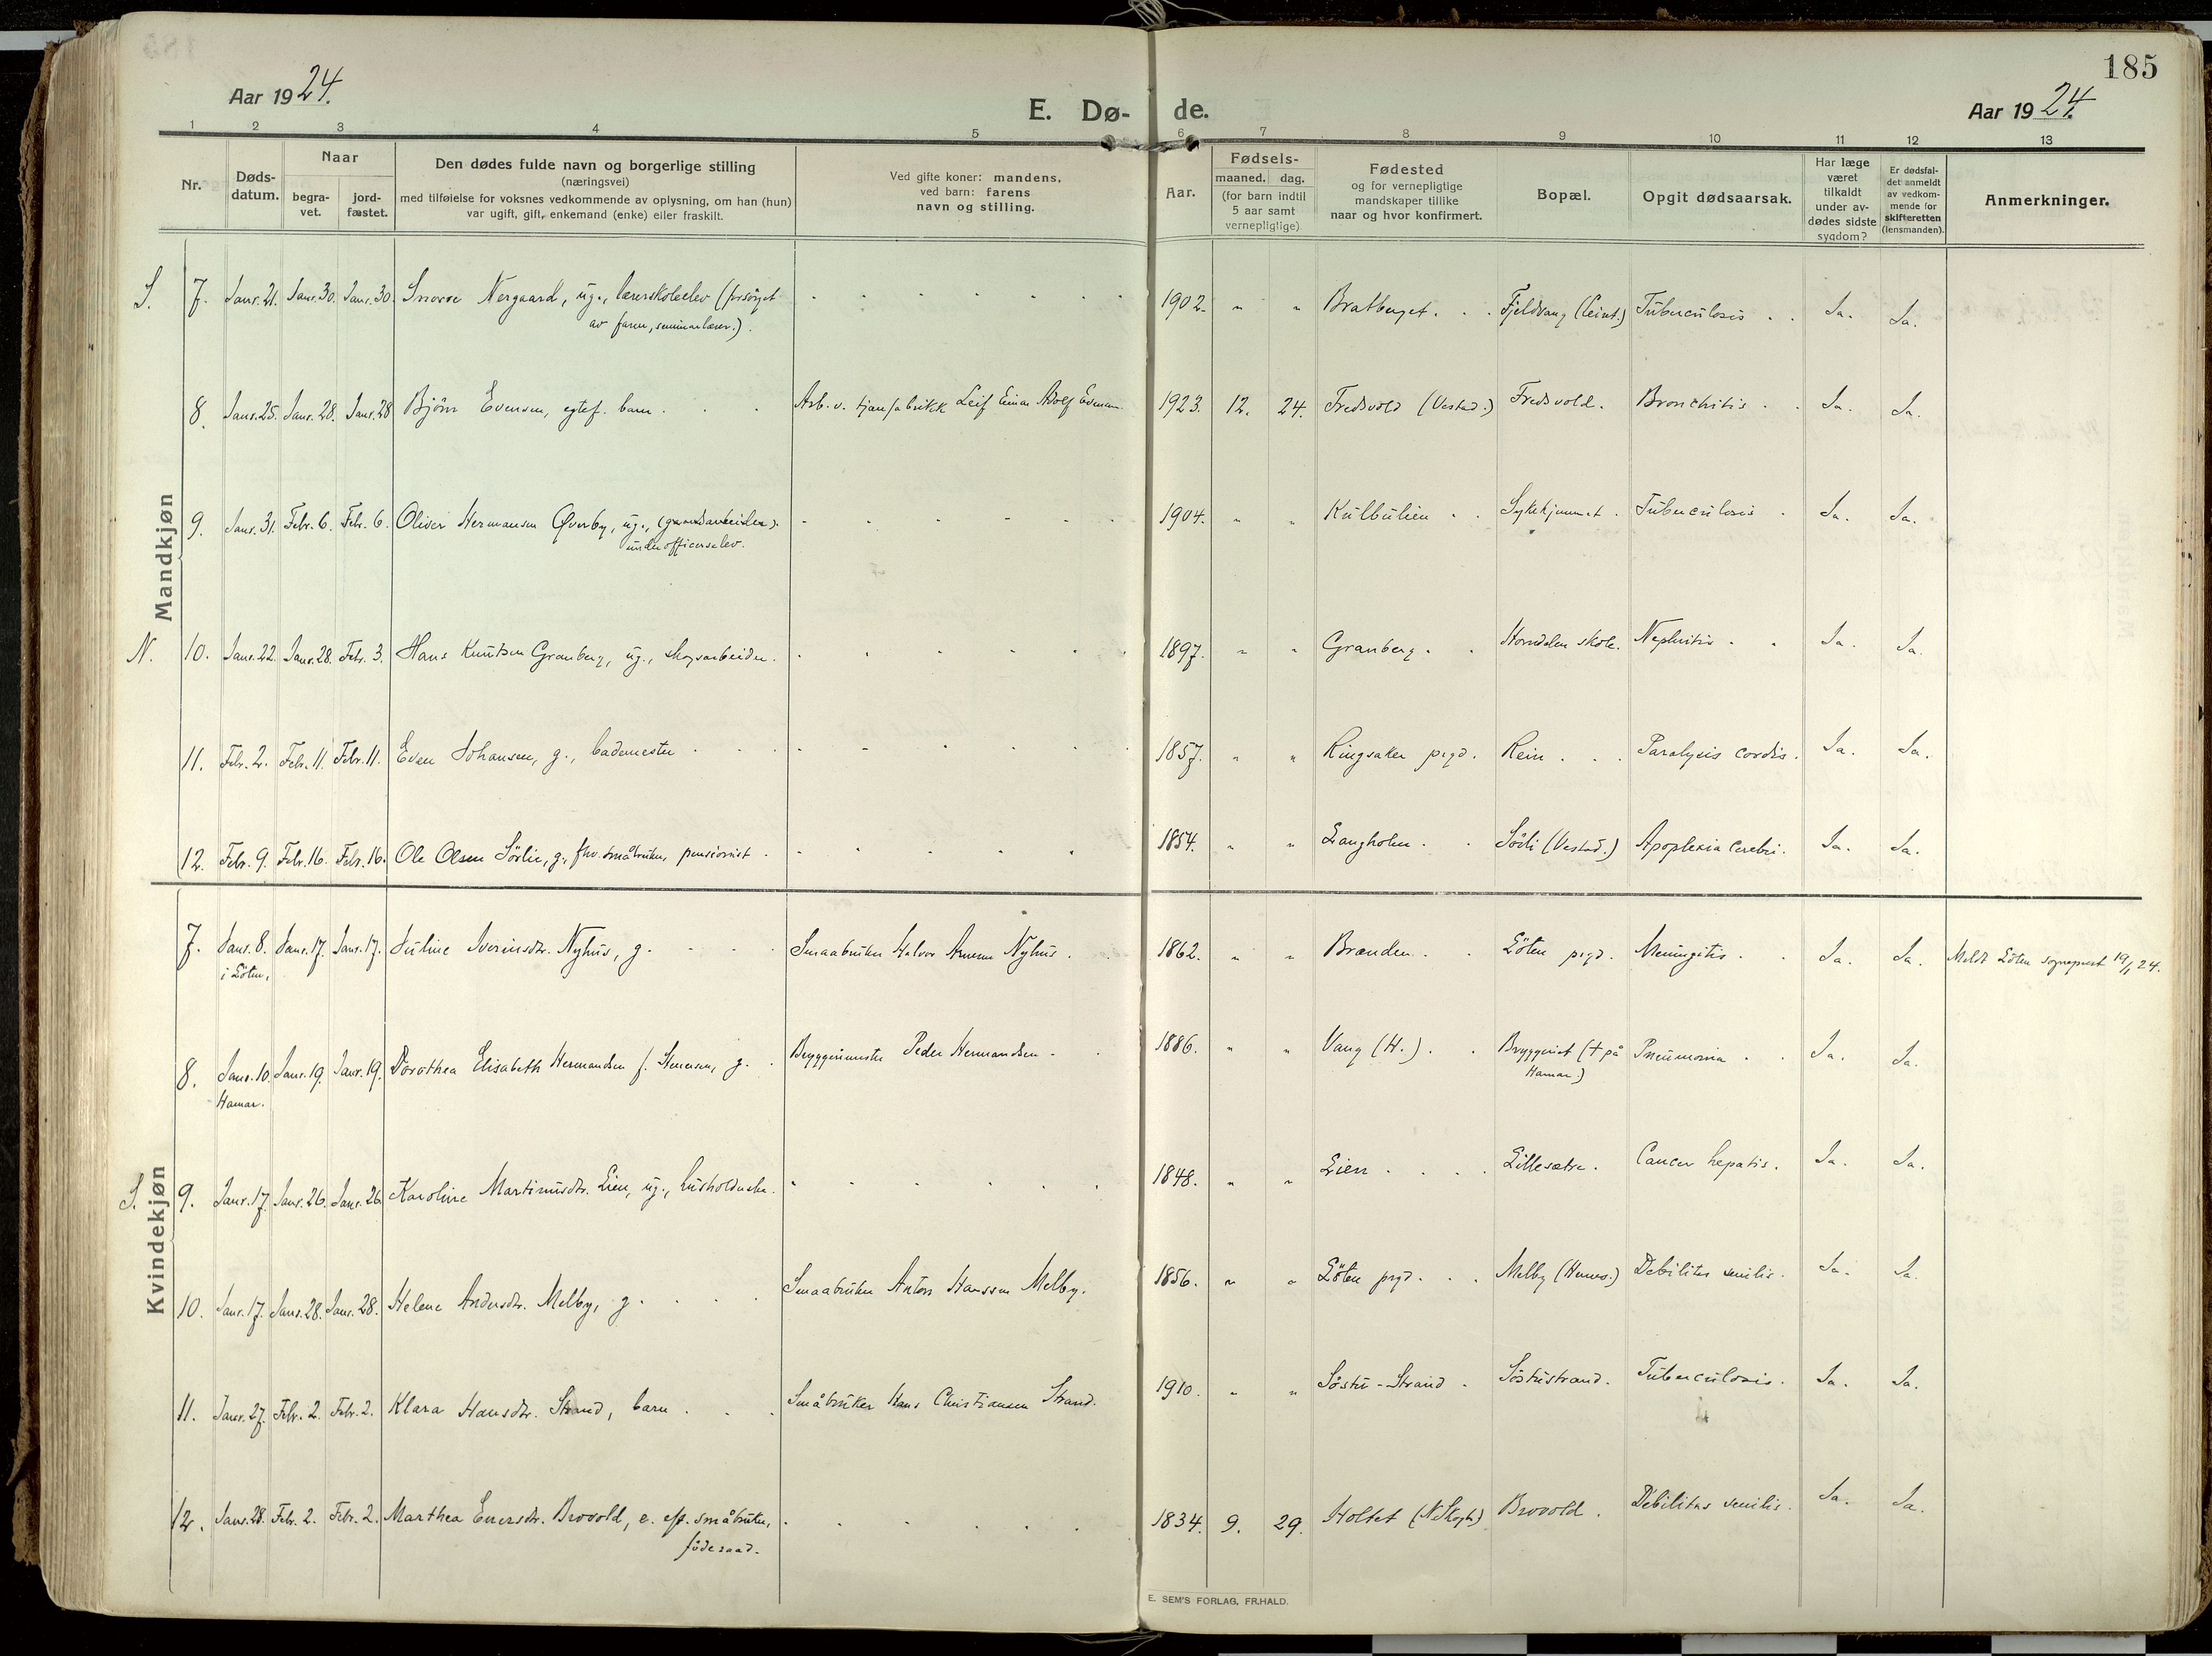 185
Aar 1924.
E. Dø- de.
Aar 1924.
1 2 3 4 5 6 7 8 9 10 11 12 13
Nr.
Døds-
datum.
Naar
begra-
vet.
jord-
fæstet.
Den dødes fulde navn og borgerlige stilling
(næringsvei)
med tilføielse for voksnes vedkommende av oplysning, om han (hun)
var ugift, gift, enkemand (enke) eller fraskilt.
Ved gifte koner: mandens,
ved barn: farens
navn og stilling.
Aar.
Fødsels-
maaned. dag.
(for barn indtil
5 aar samt
vernepligtige)
Fødested
og for vernepligtige
mandskaper tillike
naar og hvor konfirmert.
Bopæl.
Opgit dødsaarsak.
Har læge
været
tilkaldt
under av-
dødes sidste
sygdom?
Er dødsfal-
det anmeldt
av vedkom-
mende for
skifteretten
(lensmanden).
Anmerkninger.
Mandkjøn
S. 7. Janr. 21. Janr. 30. Janr. 30. Snorre Nergaard, ug., lærerskoleelev (forsørget 1902. " " Bratberget. Fjeldvang (Leint.) Tuberculosis Ja. Ja.
av faren, seminarlærer.).
8. Janr. 25. Janr. 28. Janr. 28 Bjørn Evensen, egtef. barn. Arb. v. tjærefabrikk Leif Einar Adolf Evensen 1923. 12. 24. Fredsvold (Vestad.) Fredsvold. Bronchitis. Ja. Ja.
9. Janr. 31. Febr. 6. Febr. 6. Oliver Hermansen Øverby, ug., (gaardsarbeider). 1904. " " Kulbulien Sykehjemmet. Tuberculosis Ja. Ja.
underofficerselev.
N. 10. Janr. 22. Janr. 28. Febr. 3. Hans Knutsen Granberg, ug., skogsarbeider. 1897. " " Granberg. skole. Nephritis. Ja. Ja.
11. Febr. 2. Febr. 11. Febr. 11. Even Johansen, g., bademester 1857. " " Ringsaker prgd. Rein Paralysis cordis. Ja. Ja.
12. Febr. 9. Febr. 16. Febr. 16. Ole Olsen Sørlie, g., fhv. småbruker, pensionist. 1854. " " Langholen (Vestad.) Apoplexia cerebri. Ja. Ja.
Kvindekjøn
7. Janr. 8. Janr. 17. Janr. 17. Juline Iverinsdtr. Nyhus, g. Smaabruker Halvor Arnesen Nyhus. 1862. " " Brænden. Löten prgd. Meningitis. Ja. Ja. Meldt Löten sogneprest 19/1 24.
i Löten.
8. Janr. 10. Janr. 19. Janr. 19. Dorothea Elisabeth Hermandsen f. Stenersen, g. Bryggerimester Peder Hermandsen. 1886. " " Vang (H.). Bryggeriet († på Pneumonia Ja. Ja.
Hamar. Hamar.)
S. 9. Janr. 17. Janr. 26. Janr. 26 Karoline Martinusdtr. Lien, ug., husholderske. 1848. " " Lien Lillesætra. Cancer hepatis. Ja. Ja.
10. Janr. 17. Janr. 28. Janr. 28. Helene Andersdtr. Melby, g. Smaabruker Anton Hanssen Melby. 1856. " " Löten prgd. Melby Debilitas senilis. Ja. Ja.
11. Janr. 27. Febr. 2. Febr. 2. Klara Hansdtr. Strand, barn Småbruker Hans Christiansen Strand. 1910. " " Söstu-Strand. Söstustrand. Tuberculosis. Ja. Ja.
12. Janr. 28. Febr. 2. Febr. 2. Marthea Eversdtr. Brovold, e. eft. småbruker, 1834. 9. 29. Holtet Brovold. Debilitas senilis. Ja. Ja.
föderaad.
E. SEM'S FORLAG, FR.HALD.